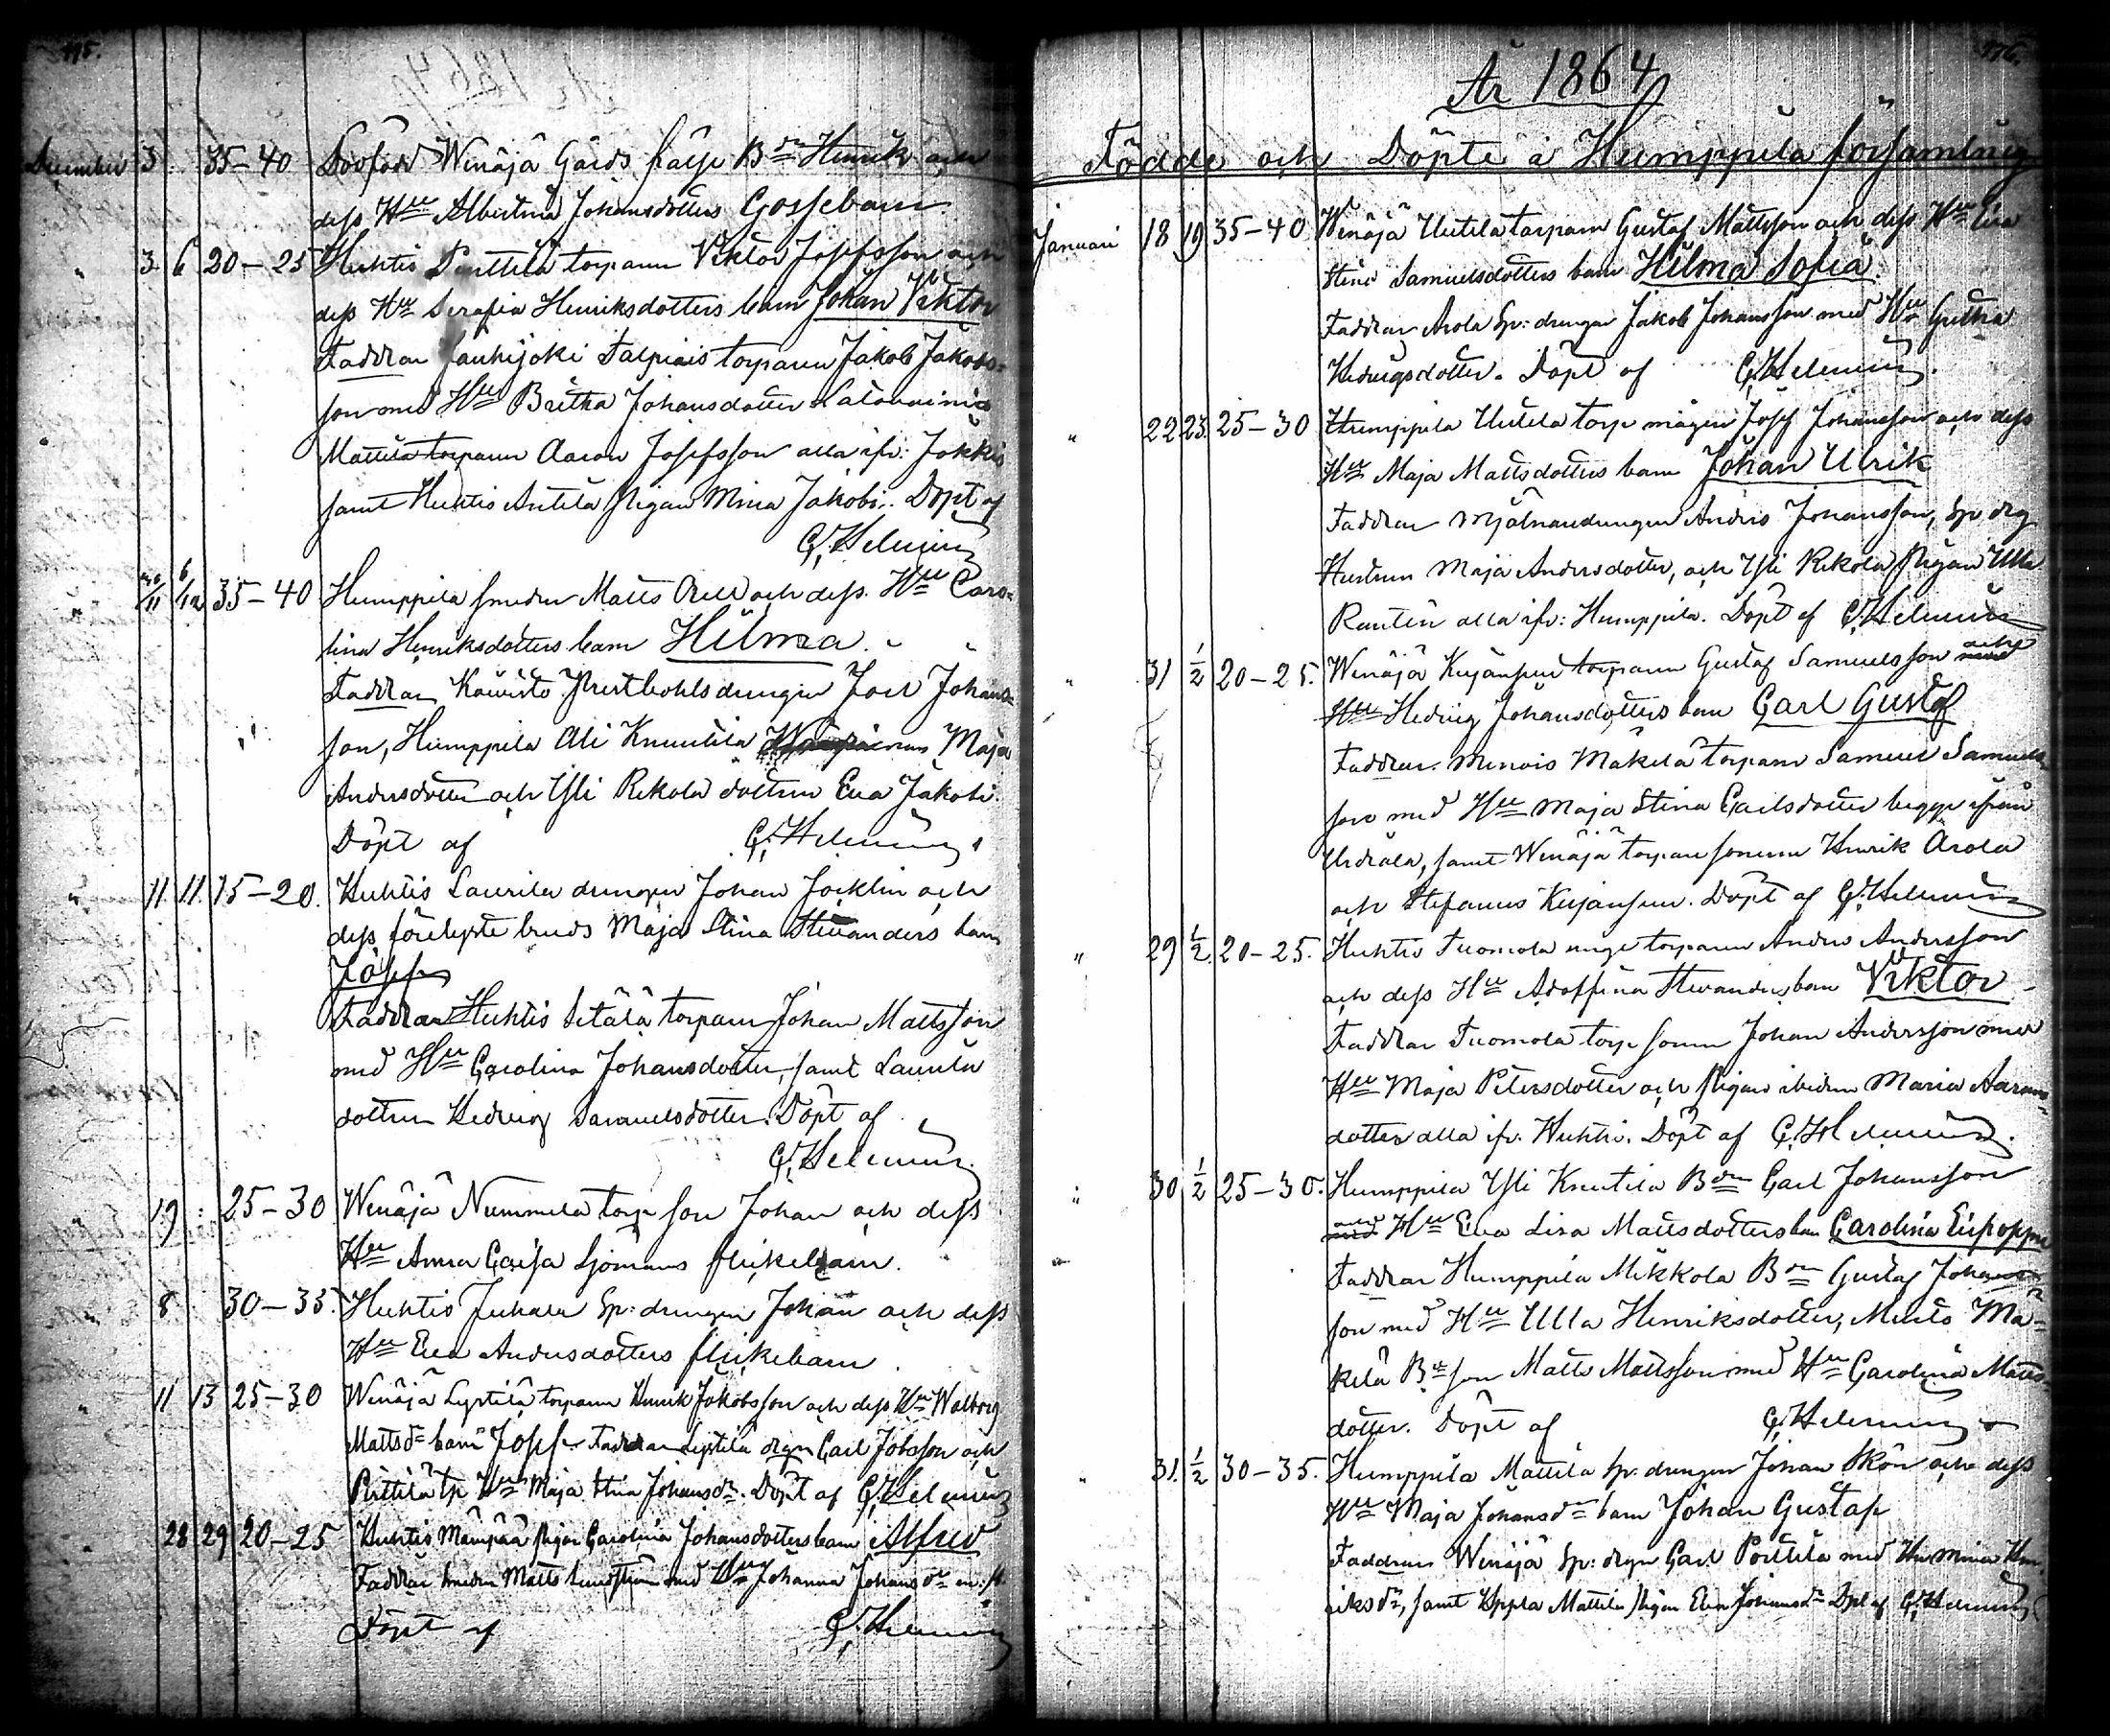 175.
December 3. 35–40 Dödfödd Wenäjä Gårds Bdn Henrik och
dess Hu Albertina Johansdotters Gossebarn.
" 3. 6 20–25 Huhtis Penttilä torparen Viktor Josefsson och
dess Hu Serafia Henriksdotters barn Johan Viktor
Faddrar Jauhijoki Talpiais torparen Jakob Jakobs-
son med Hu Bretha Johansdotter
Mattila torparen Aaron Josefsson alla ifr: Jokkis
samt Huhtis Antila pigan Mina Jakobi. Döpt af
G. Helenius
" 30/11 6/12 35–40 Humppila smeden Matts och dess Hu Caro-
lina Henriksdotters barn Hilma.
Faddrar Kouvisto Prestbohls drengen Joel Johans-
son, Humppila Ali Knuutila Maja
Andersdotter och Yli Rekola dottren Eva Jakobi.
Döpt af G. Helenius
" 11. 11. 15–20. Huhtis Laurila drengen Johan och
dess förelepte bruds Maja Stina Stewanders barn
Josef
Faddrar Huhtis Setälä torparen Johan Mattsson
med Hu Carolina Johansdotter, samt Laurila
dottren Hedvig Samuelsdotter. Döpt af
G. Helenius
" 19 : 25–30 Wenäjä Nummela torp son Johan och dess
Hu Anna Cajsa Sjömans flickebarn.
8 30–35. Huhtis Juhala Sp: drengen Johan och dess
Hu Eva Andersdotters flickebarn.
11 13 25–30 Wenäjä Lyytilä torparen Henrik Jakobsson och dess Hu Walborg
Mattsdr barn Josef Faddrar Lyytilä drgn Carl Jobsson och
Pirttilä tp Hu Maja Stina Johansdr. Döpt af G. Helenius
28 29 20–25 Huhtis Mänpää pigan Carolina Johansdotters barn Alfred
Faddrar smeden Matts Lundström med Hu Johanna Johansdr
Döpt af G. Helenius
176.
År 1864
Födde och Döpte i Humppila församling
Januari 18 19 35–40 Wenäjä Uutela torparen Gustaf Mattsson och dess Hu Eva
Stina Samuelsdotters barn Hilma Sofia.
Faddrar Arola Sp: drengen Jakob Johansson med Hu Gretha
Hedvigsdotter. Döpt af G. Helenius.
" 22 23. 25–30 Humppila Uutela torp mågen Josef Johansson och dess
Hu Maja Mattsdotters barn Johan Ulrik
Faddrar Mjölnaredrengen Anders Johansson, Sp drg
Hustrun Maja Andersdotter, och Yli Rekola Pigan Ulla
Rantin alla ifr: Humppila. Döpt af G. Helenius
" 31 1/2 20–25. Wenäjä Kujanpää torparen Gustaf Samuelsson och
Hu Hedvig Johansdotters barn Carl Gustaf
Faddrar. Menois Mäkelä torparen Samuel Samuels-
son med Hu Maja Stina Carlsdotter begge ifrån
Urdiala, samt Wenäjä torpare sonerna Henrik Arola
och Stefanus Kujanpää. Döpt af G. Helenius
" 29 1/2. 20–25. Huhtis Tuomola unge torparen Anders Andersson
och dess Hu Adolfina Stewanders barn Viktor
Faddrar Tuomola torp sonen Johan Andersson med
Hu Maja Petersdotter och Pigan ibidem Maria Aarons-
dotter alla ifr. Huhti. Döpt af G. Helenius.
" 30 1/2 25–30. Humppila Yli Knutila Bdn Carl Johansson
och Hu Eva Lisa Mattsdotters barn Carolina
Faddrar Humppila Mikkola Bdn Gustaf Johans-
son med Hu Ulla Henriksdotter, Mä-
kelä Bde son Matts Mattsson med Hu Carolina Matts-
dotter. Döpt af G. Helenius
" 31. 1/2 30–35. Humppila Mattila Sp: drengen Johan Skön och dess
Hu Maja Johansdr barn Johan Gustaf
Faddrar Wenäjä Sp: drgn Carl Pirttilä med Hu Mina Hen-
riksdr, samt Hppla Mattila Pigan Eva Johansdr Dpt af G. Helenius